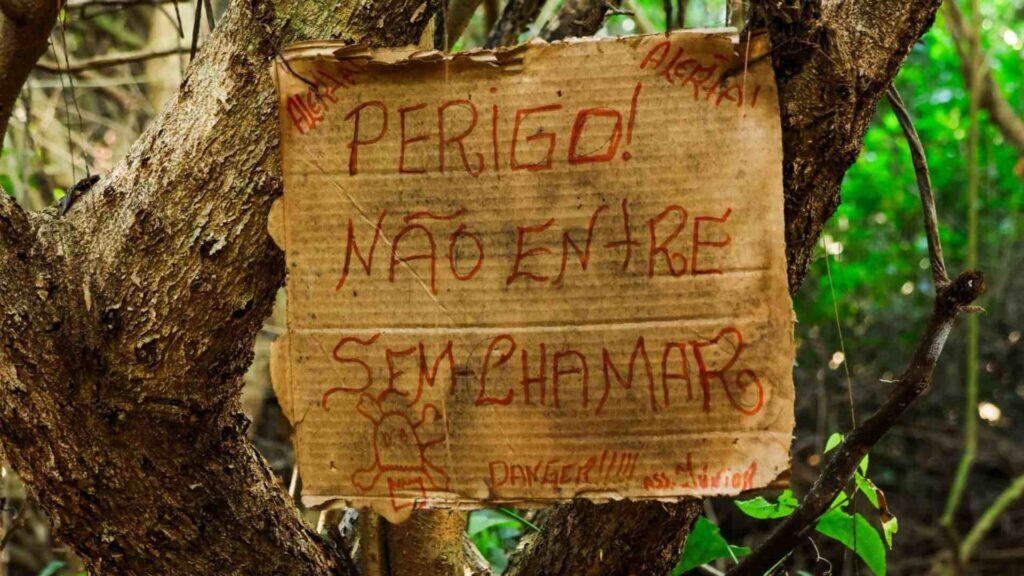 ALERTA! ALERTA!
PERIGO!
NÃO ENTRE
SEM CHAMAR
DANGER!!!!! ASS: JÚNIOR